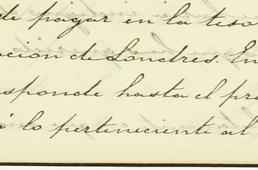 de pagar en la teso
cion de Londres. En
sponde hasta el pr
lo perteneciente al